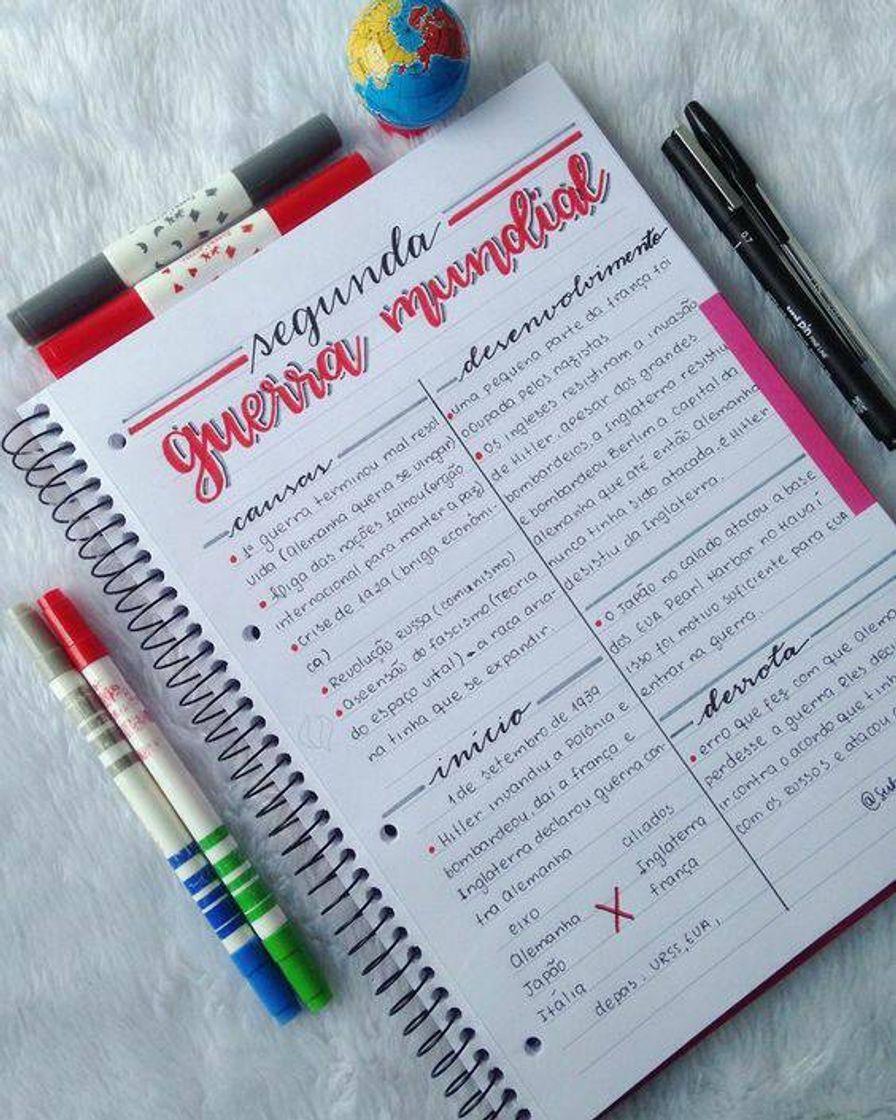 segunda
guerra mundial
causas
1ª guerra terminou mal resol
vida (Alemanha queria se vingar)
Aliga das nações falhou (orgão
internacional para manter a paz)
Crise de 1929 (briga econômi-
ca)
Revolução Russa (comunismo)
Ascensão do fascismo (Teoria
do espaço vital) → a raça aria-
na tinha que se expandir.
início
1 de setembro de 1939
Hitler invandiu a Polônia e
bombardeou, daí a frança e
Inglaterra declarou guerra con-
tra Alemanha
eixo aliados
Alemanha X Inglaterra
Japão frança
Itália
depois. URSS, EUA,
desenvolvimento
uma pequena parte da frança foi
ocupada pelos nazistas
Os ingleses resistiram a invasão
de Hitler, apesar dos grandes
bombardeios, a Inglaterra resistiu
e bombardeou Berlim a capital da
Alemanha que até então Alemanha
nunca tinha sido atacada, e Hitler
desistiu da Inglaterra.
O Japão no calado atacou a base
dos EUA Pearl Harbor no Havaí
isso foi motivo suficiente para EUA
entrar na guerra.
derrota
erro que fez com que Alem
perdesse a guerra Eles deci
ir contra o acordo que tin
com os Russos e atacou
0.7
uni pin FINE LINE